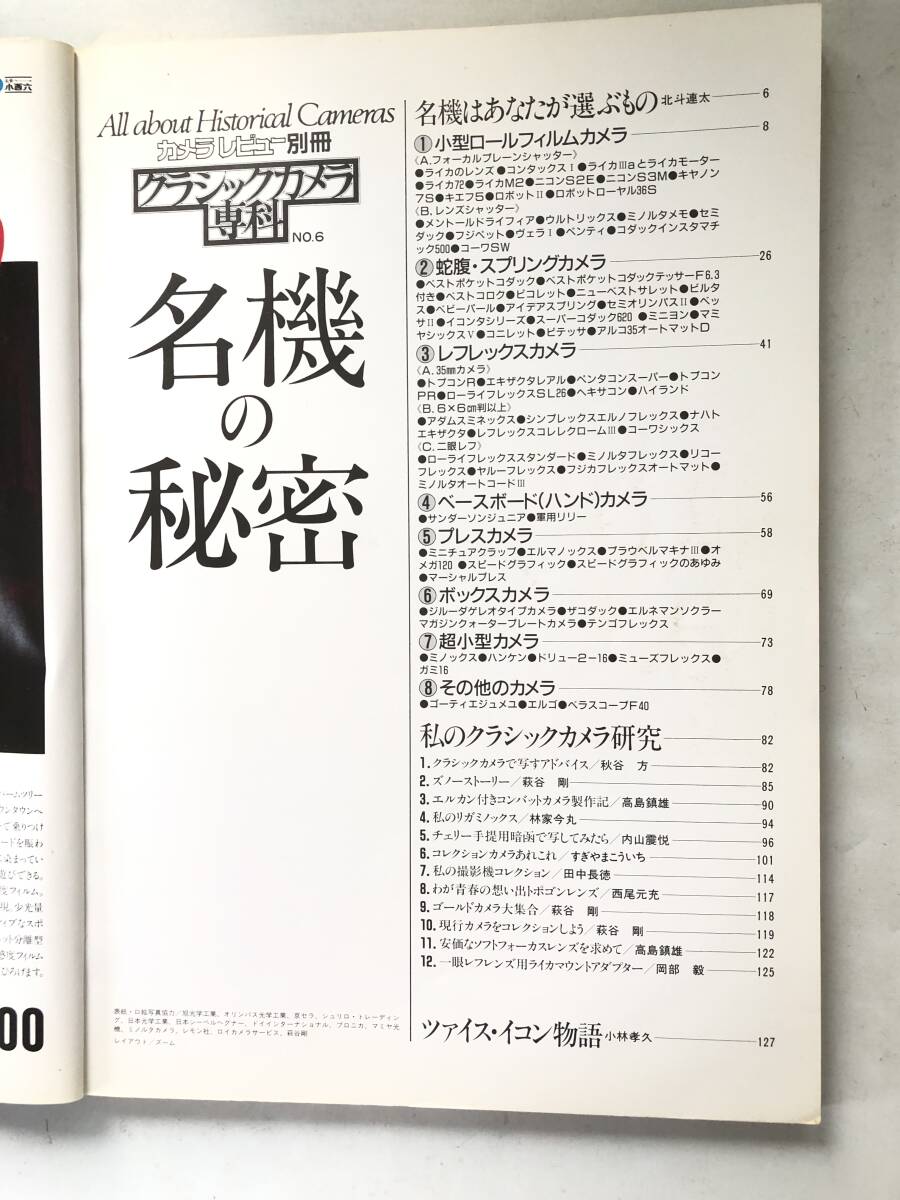 小西六
All about Historical Cameras
カメラレビュー別冊
クラシックカメラ
専科
NO.6
名機
の
秘密
名機はあなたが選ぶもの 北斗連太 6
①小型ロールフィルムカメラ 8
〈A.フォーカルプレーンシャッター〉
●ライカのレンズ●コンタックスⅠ●ライカⅢaとライカモーター
●ライカ72●ライカM2●ニコンS2E●ニコンS3M●キヤノン
7S●キエフ5●ロボットⅡ●ロボットローヤル36S
〈B.レンズシャッター〉
●メントールドライフィア●ウルトリックス●ミノルタメモ●セミ
ダック●フジペット●ヴェラⅠ●ペンティ●コダックインスタマチ
ック500●コーワSW
②蛇腹・スプリングカメラ 26
●ベストポケットコダック●ベストポケットコダックテッサーF6.3
付き●ベストコロク●ピコレット●ニューベストサレット●ビルタ
ス●ベビーパール●アイデアスプリング●セミオリンパスⅡ●ベッ
サⅡ●イコンタシリーズ●スーパーコダック620 ●ミニヨン●マミ
ヤシックスⅤ●コニレット●ビテッサ●アルコ35オートマットD
③レフレックスカメラ 41
〈A.35㎜カメラ〉
●トプコンR●エキザクタレアル●ペンタコンスーパー●トプコン
PR●ローライフレックスSL26●ヘキサコン●ハイランド
〈B.6×6㎝判以上〉
●アダムスミネックス●シンプレックスエルノフレックス●ナハト
エキザクタ●レフレックスコレレクロームⅢ●コーワシックス
〈C.二眼レフ〉
●ローライフレックススタンダード●ミノルタフレックス●リコー
フレックス●ヤルーフレックス●フジカフレックスオートマット●
ミノルタオートコードⅢ
④ベースボード(ハンド)カメラ 56
●サンダーソンジュニア●軍用リリー
⑤プレスカメラ 58
●ミニチュアクラップ●エルマノックス●プラウベルマキナⅢ●オ
メガ120 ●スピードグラフィック●スピードグラフィックのあゆみ
●マーシャルプレス
⑥ボックスカメラ 69
●ジルーダゲレオタイプカメラ●ザコダック●エルネマンソクラー
マガジンクォータープレートカメラ●テンゴフレックス
⑦超小型カメラ 73
●ミノックス●ハンケン●ドリュー2-16●ミューズフレックス●
ガミ16
⑧その他のカメラ 78
●ゴーティエジュメユ●エルゴ●ベラスコープF40
私のクラシックカメラ研究 82
1.クラシックカメラで写すアドバイス/秋谷 方 82
2.ズノーストーリー/萩谷 剛 85
3.エルカン付きコンバットカメラ製作記/高島鎮雄 90
4.私のリガミノックス/林家今丸 94
5.チェリー手提用暗函で写してみたら/内山震悦 96
6.コレクションカメラあれこれ/すぎやまこういち 101
7.私の撮影機コレクション/田中長徳 114
8.わが青春の想い出トポゴンレンズ/西尾元充 117
9.ゴールドカメラ大集合/萩谷 剛 118
10.現行カメラをコレクションしよう/萩谷 剛 119
11.安価なソフトフォーカスレンズを求めて/高島鎮雄 122
12.一眼レフレンズ用ライカマウントアダプター/岡部 毅 125
ツァイス・イコン物語 小林孝久 127
表紙・口絵写真協力/旭光学工業、オリンパス光学工業、京セラ、シュリロ・トレーディン
グ、日本光学工業、日本シーベルヘグナー、ドイインターナショナル、ブロニカ、マミヤ光
機、ミノルタカメラ、レモン社、ロイカメラサービス、萩谷剛
レイアウト/ズーム
ームツリー
ウンタウンへ
て乗りつけ
ードを賑わ
染まってい
遊びできる。
度フィルム。
現。少光量
ィブなスポ
ット分離型
感度フィルム
ひろげます。
00